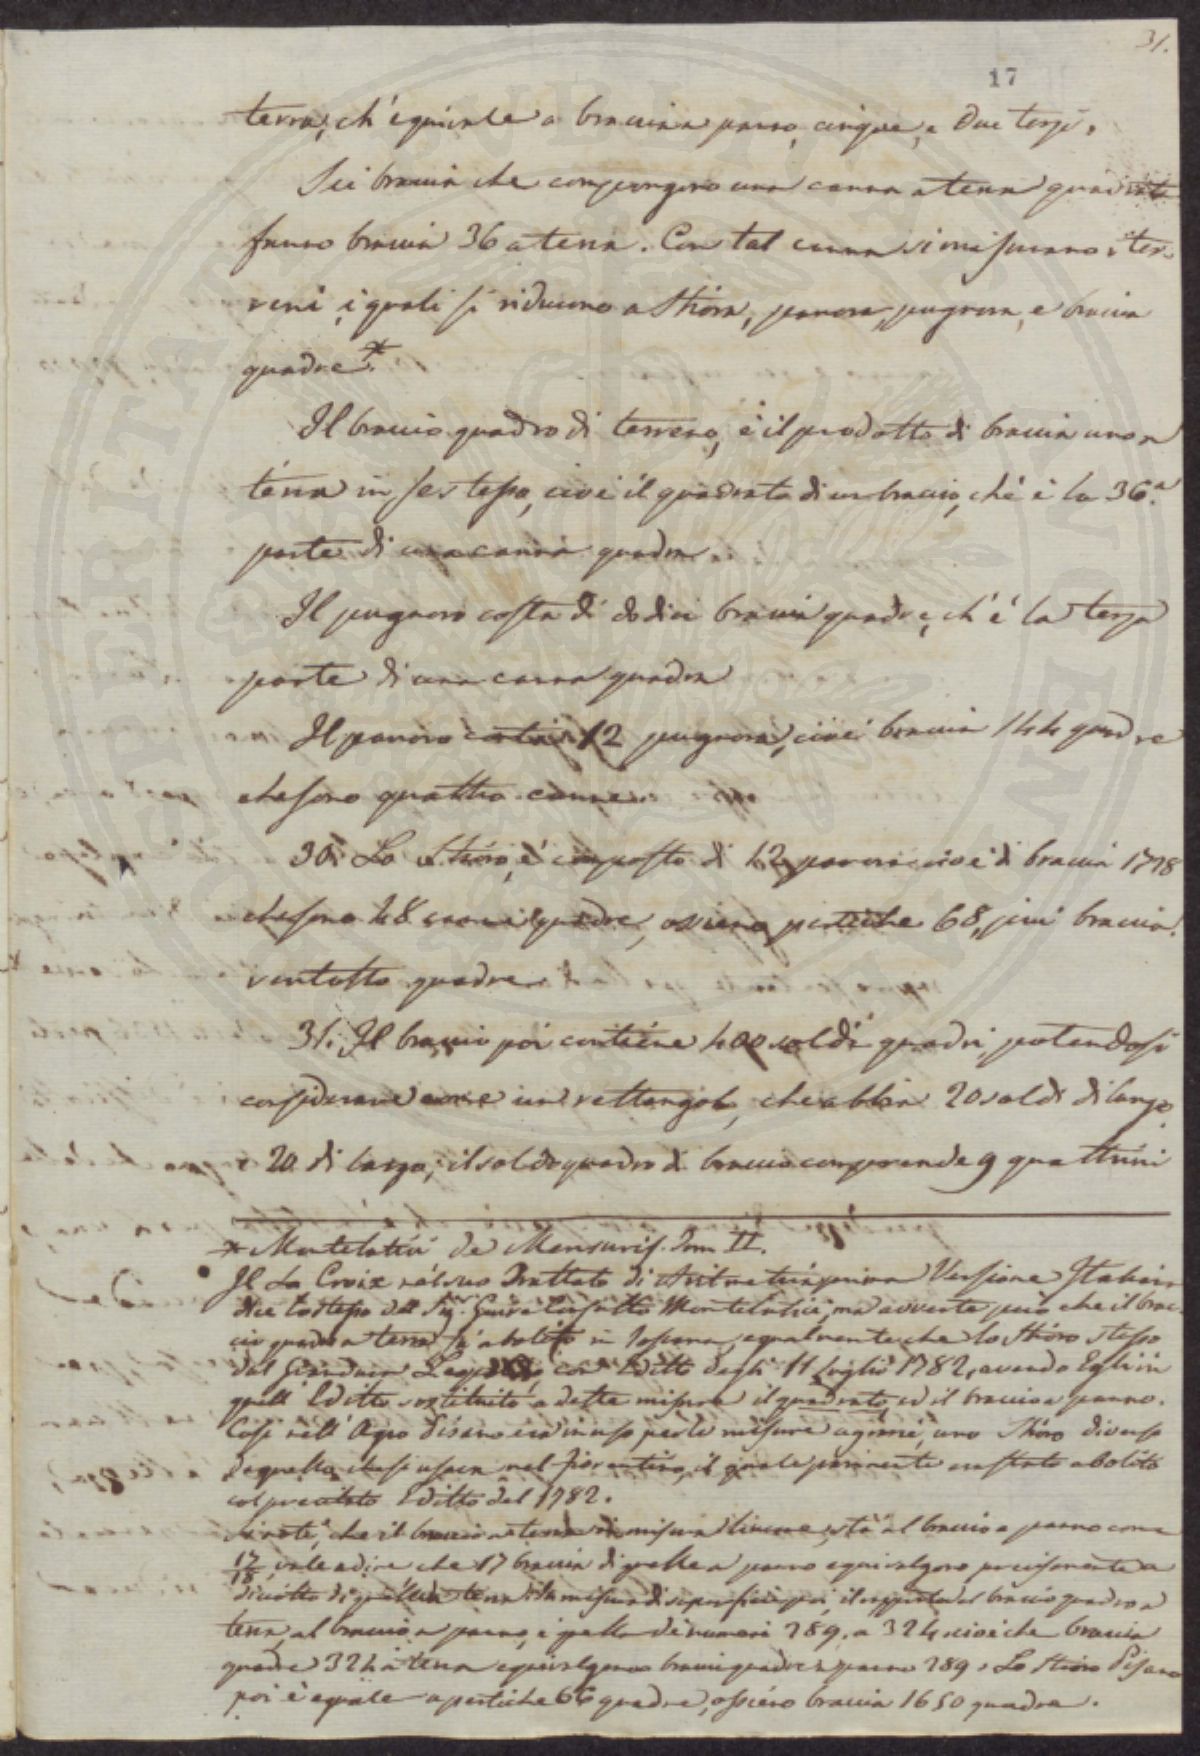 31.
17
terra, ch'equivale a braccia a panno, cinque, e due terzi.
Sei braccia che compongono una canna a terra quadrata
fanno braccia 36 a terra. Con tal canna si misurano i ter-
reni, i quali si riducono a Stiora, panora, pugnora, e braccia
quadre.*
Il braccio quadro di terreno, è il prodotto di braccia uno a
terra in se stesso, cioè il quadrato di un braccio, ch'è la 36.ª
parte di una canna quadra.
Il pugnoro costa di dodici braccia quadre, ch'è la terza
parte di una canna quadra
Il panoro costa 12 pugnora, cioè braccia 144 quadre
che sono quattro canne.
30. Lo Stioro, è composto di 12 panora cioè di braccia 1728
che sono 48 canne quadre, ossieno pertiche 68, più braccia
ventotto quadre.
31. Il braccio poi contiene 400 soldi quadri, potendosi
considerare come un rettangolo, che abbia 20 soldi di lungo
e 20 di largo; il soldo quadro di braccio comprende 9 quattrini
* Montelatici de Mensuris. Tom II.
Il La Croix nel suo Trattato di Aritmetica prima Versione Italiana
dice lo stesso del Sig.r Montelatici, ma avverte però che il brac-
cio quadro a terra fù abolito in Toscana, egualmente che lo Stioro stesso
dal Granduca Leopoldo con Editto degli 11 Luglio 1782, avendo Egli in
quell'Editto sostituito a dette misure il quadrato ed il braccio a panno.
Così nell'Agro Pisano era in uso per le misure agrarie, uno Stioro diverso
da quello che si usava nel fiorentino, il quale parimente è restato abolito
col precitato Editto del 1782.
Si noti, che il braccio a terra di misura lineare, sta al braccio a panno come
17/18, vale a dire che 17 braccia di quelle a panno equivalgono precisamente a
diciotto di quelle a terra: alla misura di superficie poi, il rapporto del braccio quadro a
terra, al braccio a panno, è quello de' numeri 289. a 324 cioè che braccia
quadre 324 a terra equivalgono braccia quadre a panno 289. Lo Stioro Pisano
poi è eguale a pertiche 66 quadre, ossieno braccia 1650 quadre.